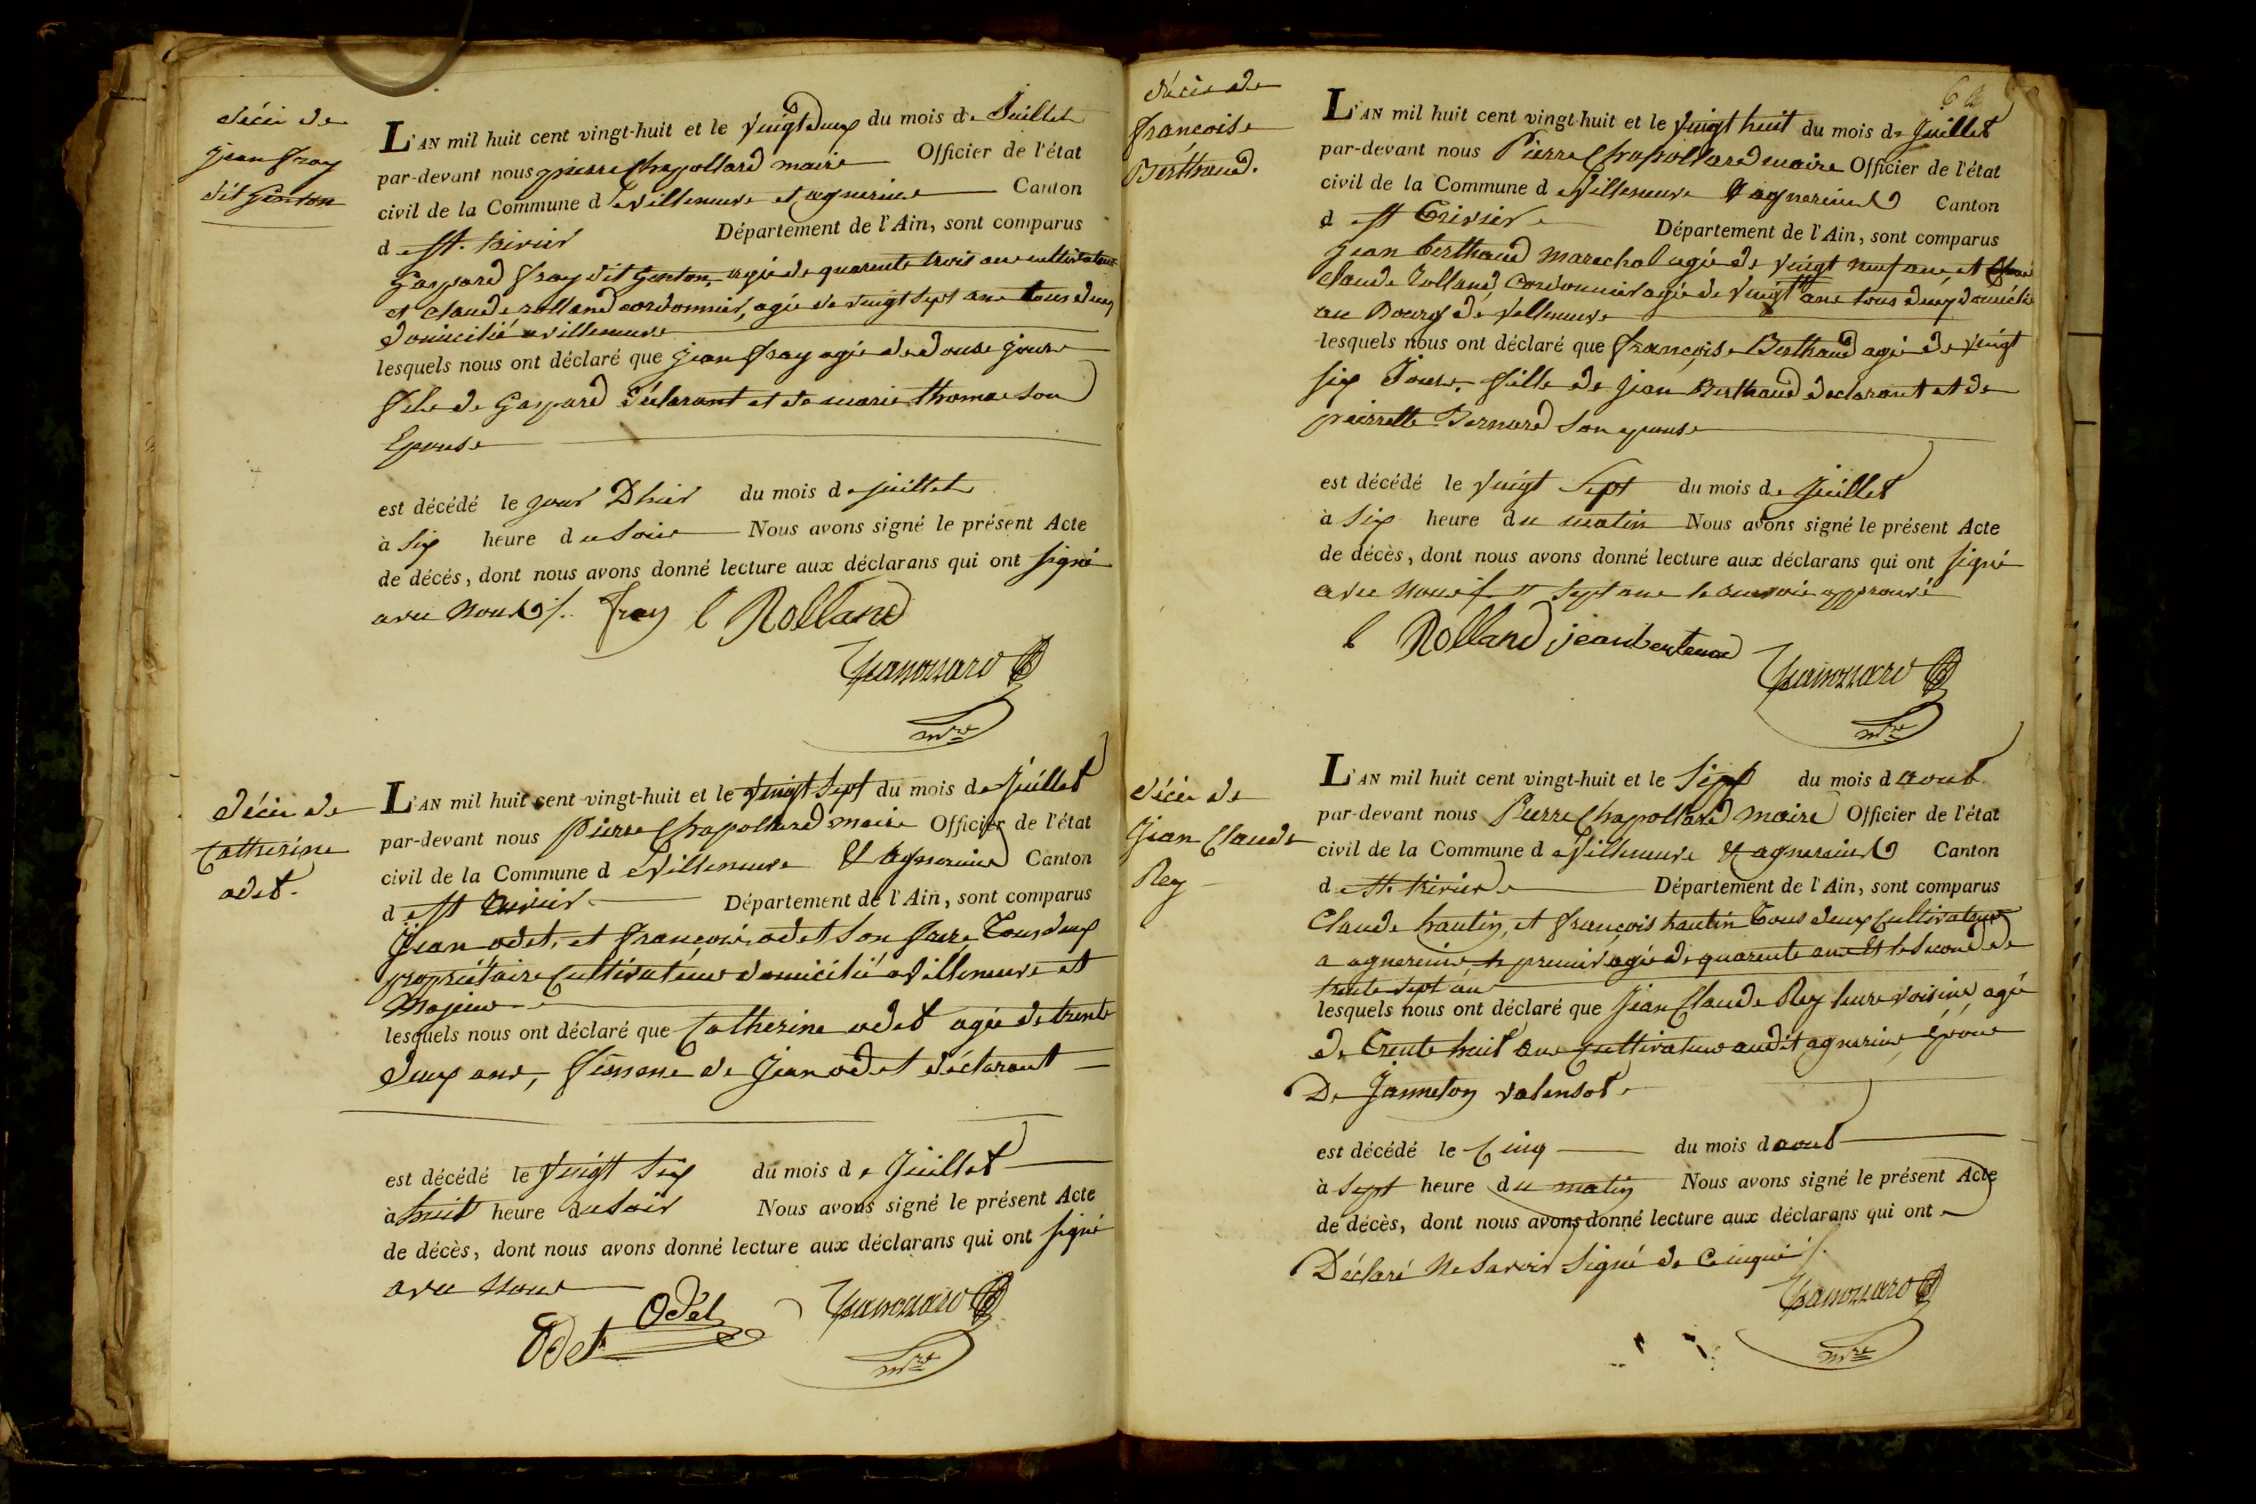 décès de
jean fray
dit Genton
L'AN mil huit cent vingt-huit et le vingt deux du mois de Juillet
par-devant nous pierre Chapollard maire Officier de l'état
civil de la Commune de Villeneuve et agnereins Canton
de St. trivier Département de l'Ain, sont comparus
Gaspard fray dit Genton, agé de quarente trois ans cultivateur
et claude rolland cordonnier, agé de vingt sept ans tous deux
domicilié a villeneuve
lesquels nous ont déclaré que jean fray agé de douse jours
fils de Gaspard déclarant et de marie thomas son
Epouse
est décédé le jour D'hier du mois de juillet
à Six heure du Soir Nous avons signé le présent Acte
de décés, dont nous avons donné lecture aux déclarans qui ont signé
avec nous ./. fray C Rolland
Chapollard
mre
décès de
Catherine
odet.
L'AN mil huit cent vingt-huit et le vingt Sept du mois de Juillet
par-devant nous Pierre Chapollard maire Officier de l'état
civil de la Commune de Villeneuve & agnereins Canton
de St trivier Département de l'Ain, sont comparus
Jean odet, et françois odet son frere Tous deux
propriétaire Cultivateurs domicilié a Villeneuve et
Majeurs
lesquels nous ont déclaré que Catherine odet agée de trente
deux ans, femme de Jean odet déclarant
est décédé le vingt Six du mois de Juillet
à huit heure du Soir Nous avons signé le présent Acte
de décès, dont nous avons donné lecture aux déclarans qui ont signé
avec nous
Odet Odet Chapollard
mre
décès de
françoise
Berthaud.
L'AN mil huit cent vingt-huit et le vingt huit du mois de Juillet
par-devant nous Pierre Chapollard maire Officier de l'état
civil de la Commune de Villeneuve & agnereins Canton
de St Trivier Département de l'Ain, sont comparus
jean berthaud marechal agé de vingt neuf ans, et
claude Rolland, Cordonnier agé de vingt ans tous deux domicilié
au Bourg de Villeneuve
lesquels nous ont déclaré que françoise Berthaud agée de vingt
six Jours, fille de jean Berthaud declarant et de
pierrette Bernard son epouse
est décédé le vingt Sept du mois de Juillet
à Six heure du matin Nous avons signé le présent Acte
de décès, dont nous avons donné lecture aux déclarans qui ont signé
avec nous // Sept ans le renvoie approuvé
C Rolland jean bertaud
Chapollard
mre
décès de
Jean Claude
Rey
L'AN mil huit cent vingt-huit et le Sept du mois d aout
par-devant nous Pierre Chapollard maire Officier de l'état
civil de la Commune de Villeneuve & agnereins Canton
de St. trivier Département de l'Ain, sont comparus
Claude hautin, et françois hautin Tous deux Cultivateurs
a agnereins le premier agé de quarente ans Et le second de
trente sept ans
lesquels nous ont déclaré que Jean Claude Rey leurs voisins, agé
de Trente huit ans cultivateur audit agnereins, époux
De Janneton valensot
est décédé le Cinq du mois d aout
à Sept heure du matin Nous avons signé le présent Acte
de décès, dont nous avons donné lecture aux déclarans qui ont
Déclaré Ne Savoir Signé de Ce inquis ./.
Chapollard
mre